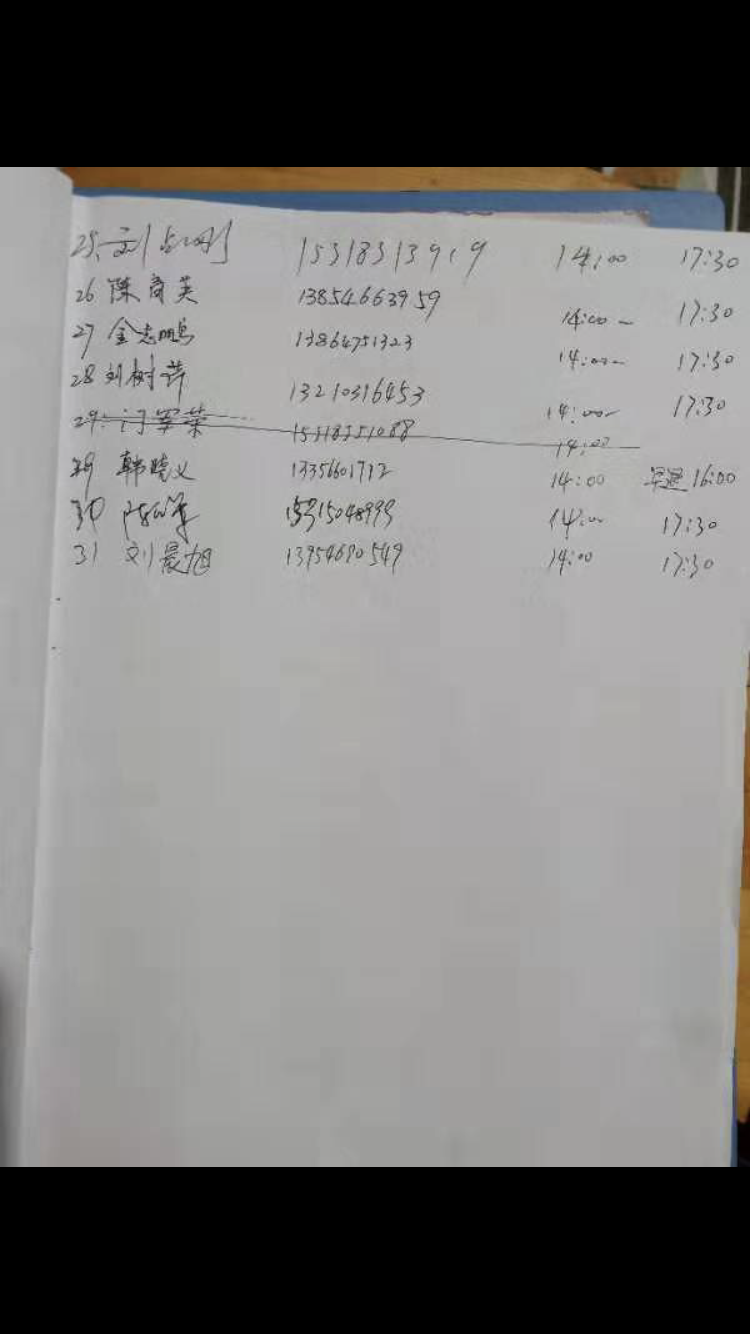 25、刘占刚 15318313919 14:00 17:30
26 陈育英 13854663959 14:00 — 17:30
27 金志鹏 13864751323 14:00 — 17:30
28 刘树萍 13210316453 14:00 — 17:30
29、门军荣 15318351088 14:00
29 韩晓义 13356601712 14:00 早退 16:00
30 14:00 17:30
31 刘晨旭 13954680549 14:00 17:30